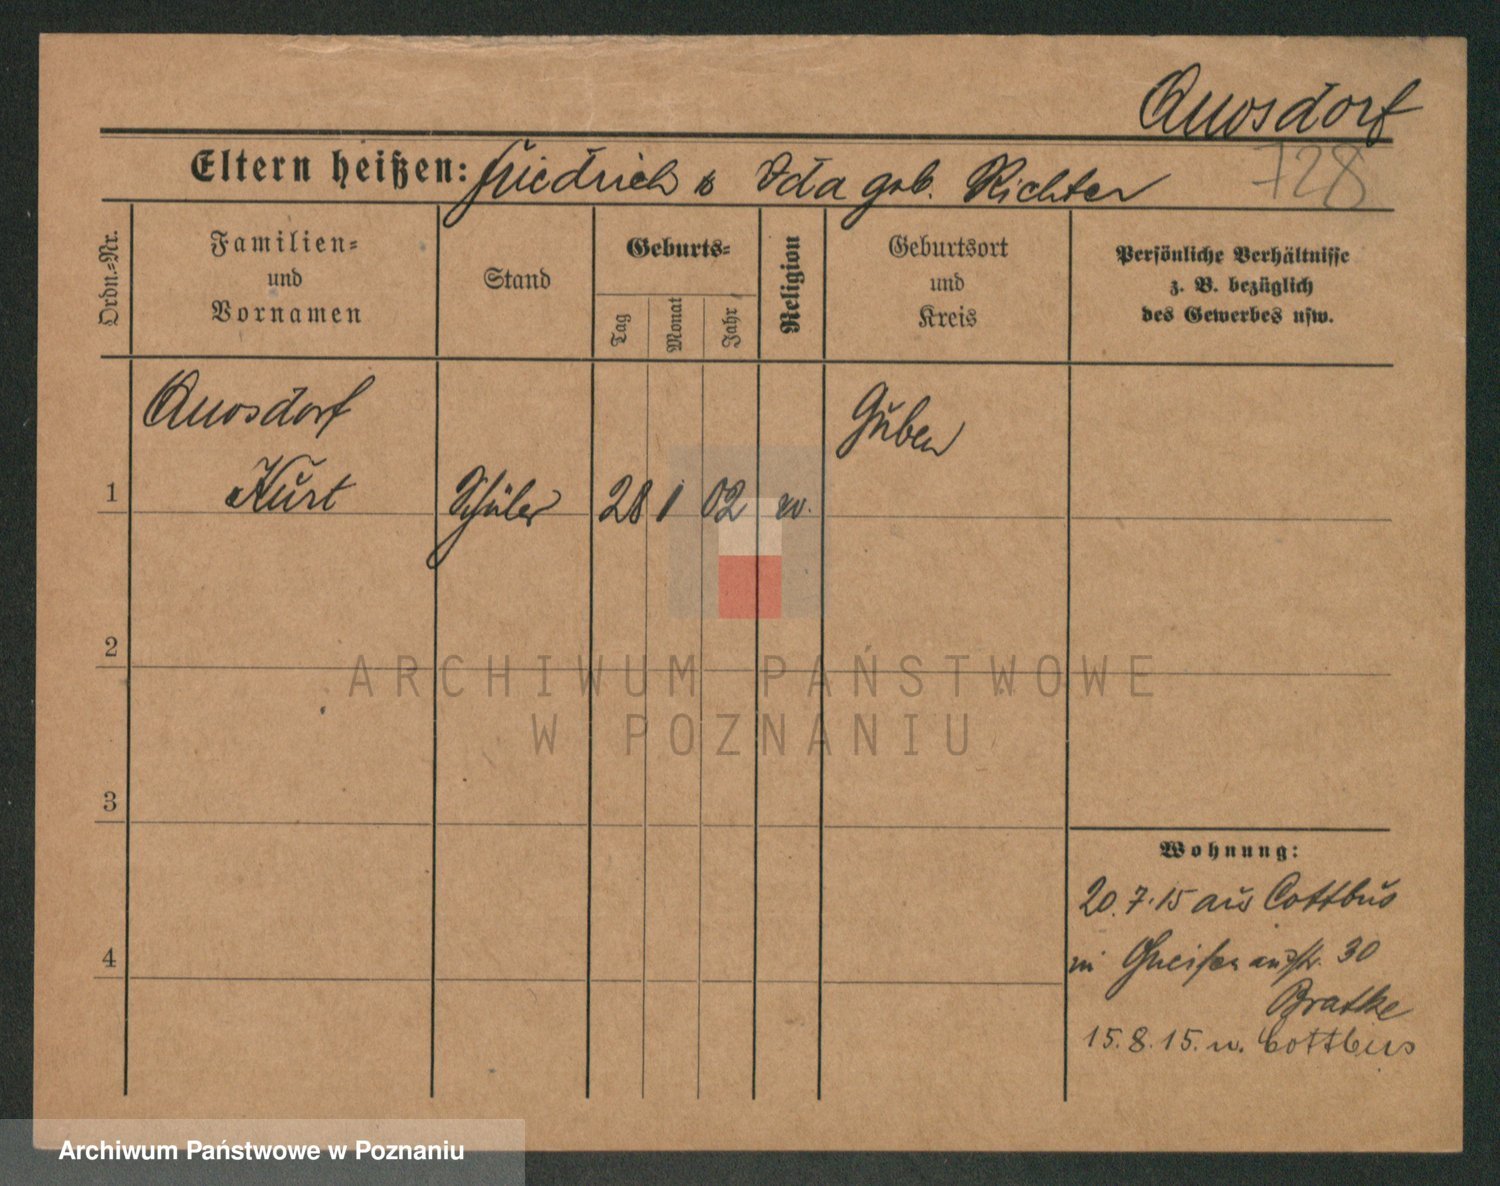 Amsdorf
Eltern heißen: Friedrich u Ida geb. Richter
728
Ordn.=Nr.
Familien=
und
Vornamen
Stand
Geburts=
Tag
Monat
Jahr
Religion
Geburtsort
und
Kreis
Persönliche Verhältnisse
z. B. bezüglich
des Gewerbes usw.
Amsdorf
Guben
1 Kurt Schüler 28 1 02 ev.
2
ARCHIWUM PAŃSTWOWE
W POZNANIU
3
Wohnung:
20.7.15 aus Cottbus
4 30
Bratke
15.8.15. n. Cottbus
Archiwum Państwowe w Poznaniu